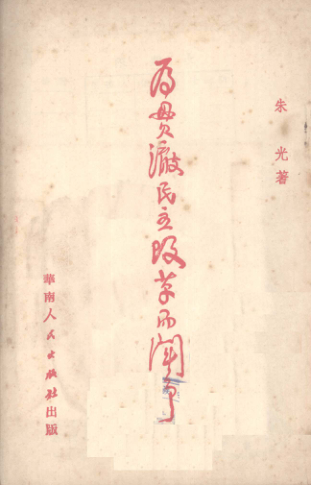 朱光著
为贯澈民主改革而闘争
華南人民出版社出版